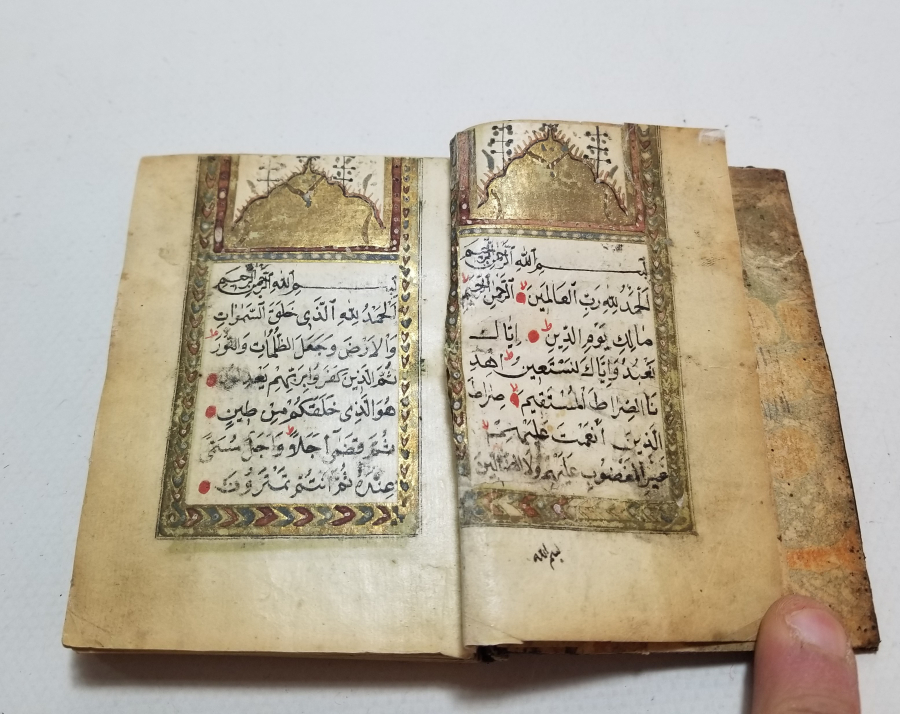 بِسْمِ اللهِ الرَّحْمٰنِ الرَّحِيمِ
اَلْحَمْدُ لِلّٰهِ رَبِّ الْعَالَمِينَ الرَّحْمٰنِ الرَّحِيمِ
مَالِكِ يَوْمِ الدِّينِ اِيَّاكَ
نَعْبُدُ وَاِيَّاكَ نَسْتَعِينُ اِهْدِ
نَا الصِّرَاطَ الْمُسْتَقِيمَ صِرَاطَ
الَّذِينَ اَنْعَمْتَ عَلَيْهِمْ
غَيْرِ الْمَغْضُوبِ عَلَيْهِمْ وَلَا الضَّالِّينَ
بسم الله
بِسْمِ اللهِ الرَّحْمٰنِ الرَّحِيمِ
اَلْحَمْدُ لِلّٰهِ الَّذِي خَلَقَ السَّمٰوَاتِ
وَالْاَرْضَ وَجَعَلَ الظُّلُمَاتِ وَالنُّورَ
ثُمَّ الَّذِينَ كَفَرُوا بِرَبِّهِمْ يَعْدِلُونَ
هُوَ الَّذِي خَلَقَكُمْ مِنْ طِينٍ
ثُمَّ قَضَى اَجَلًا وَاَجَلٌ مُسَمًّى
عِنْدَهُ ثُمَّ اَنْتُمْ تَمْتَرُونَ